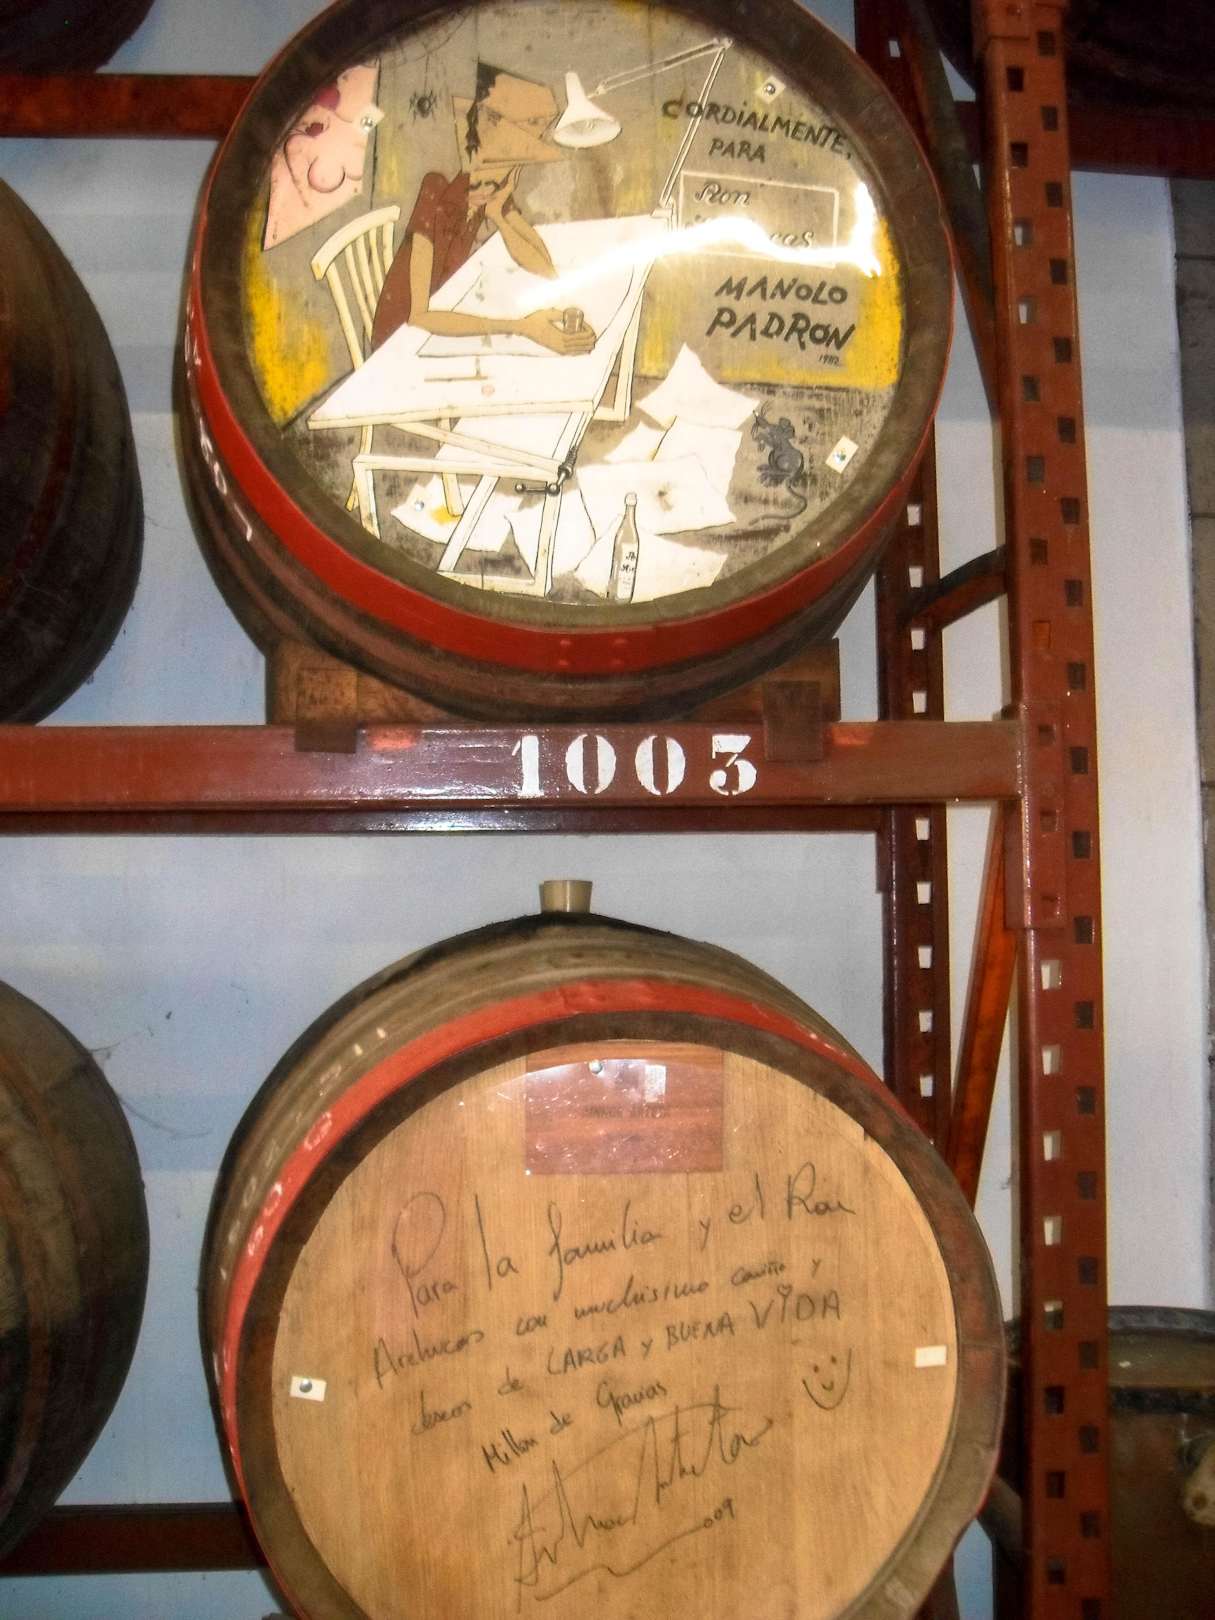 CORDIALMENTE,
PARA
Ron
MANOLO
PADRON
1982
1003
Para la familia y el Ron
Arehucas con muchisimo cariño y
deseos de LARGA y BUENA VIDA
Millon de Gracias
009